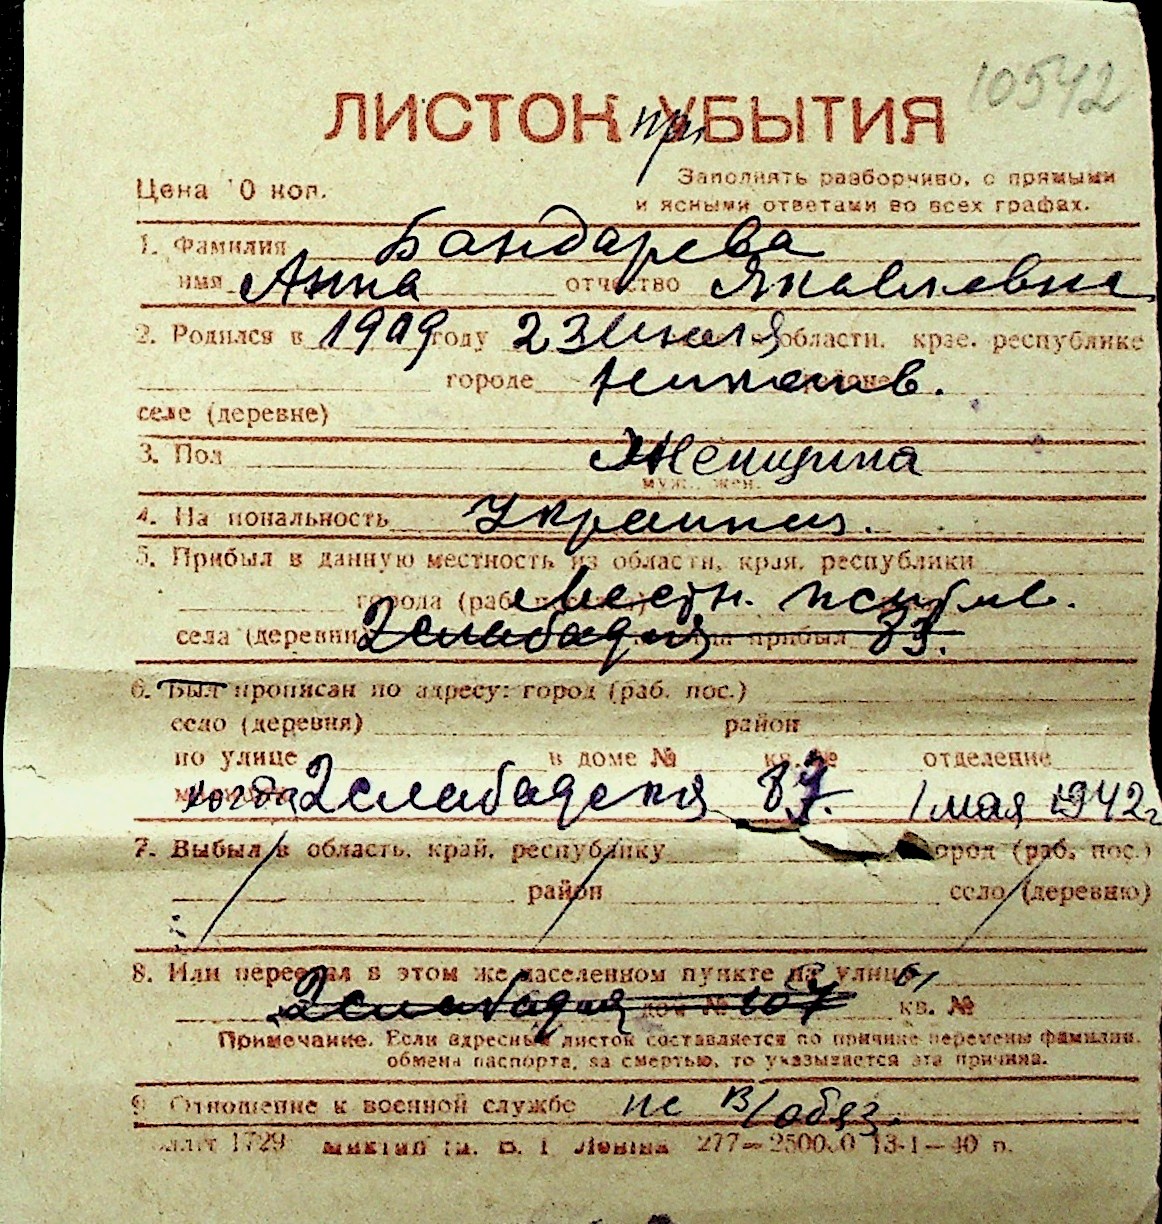 10542
ЛИСТОК при УБЫТИЯ
Цена 10 коп.
Заполнять разборчиво, с прямыми
и ясными ответами во всех графах.
1. Фамилия Бандарева
имя Анна отчество Яковлевна
2. Родился в 1909 году 23 июля области, крае, республике
городе районе
селе (деревне)
3. Пол Женщина
муж., жен.
4. Национальность Украинка.
5. Прибыл в данную местность из области, края, республики
города (раб. местн.
села (деревни) 2 слабадская прибыл 83.
6. Был прописан по адресу: город (раб. пос.)
село (деревня) район
по улице в доме № кв. № отделение
когда 2 слабадская 87. 1 мая 1942 г
7. Выбыл в область, край, республику город (раб. пос.)
район село (деревню)
8. Или переехал в этом же населенном пункте на улицу
2 слабадская дом № 107 кв. №
Примечание. Если адресный листок составляется по причине перемены фамилии,
обмена паспорта, за смертью, то указывается эта причина.
9. Отношение к военной службе не в/обяз.
1729 Ленiна 277—250000 13-1—40 р.